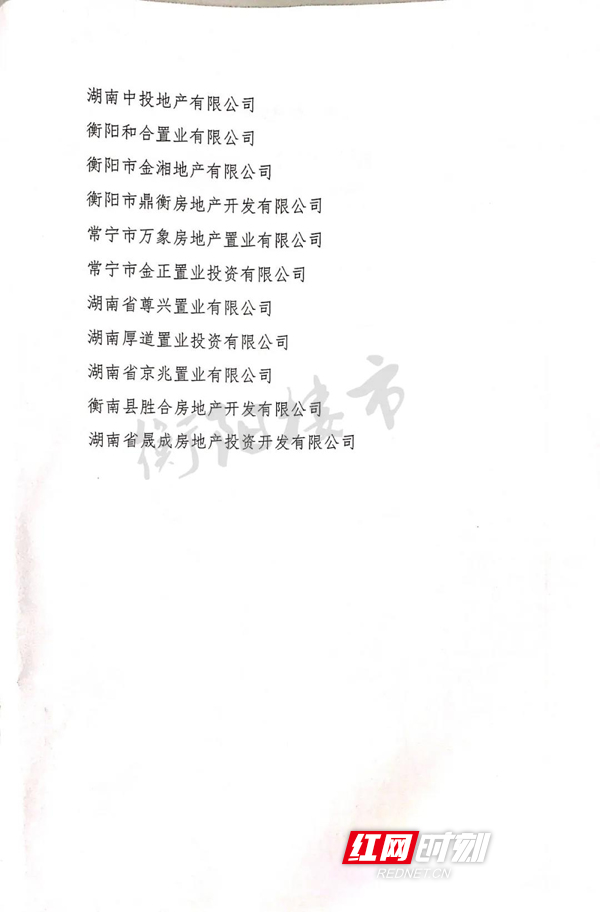 湖南中投地产有限公司
衡阳和合置业有限公司
衡阳市金湘地产有限公司
衡阳市鼎衡房地产开发有限公司
常宁市万象房地产置业有限公司
常宁市金正置业投资有限公司
湖南省尊兴置业有限公司
湖南厚道置业投资有限公司
湖南省京兆置业有限公司
衡南县胜合房地产开发有限公司
湖南省晟成房地产投资开发有限公司
衡阳楼市
红网时刻
REDNET.CN